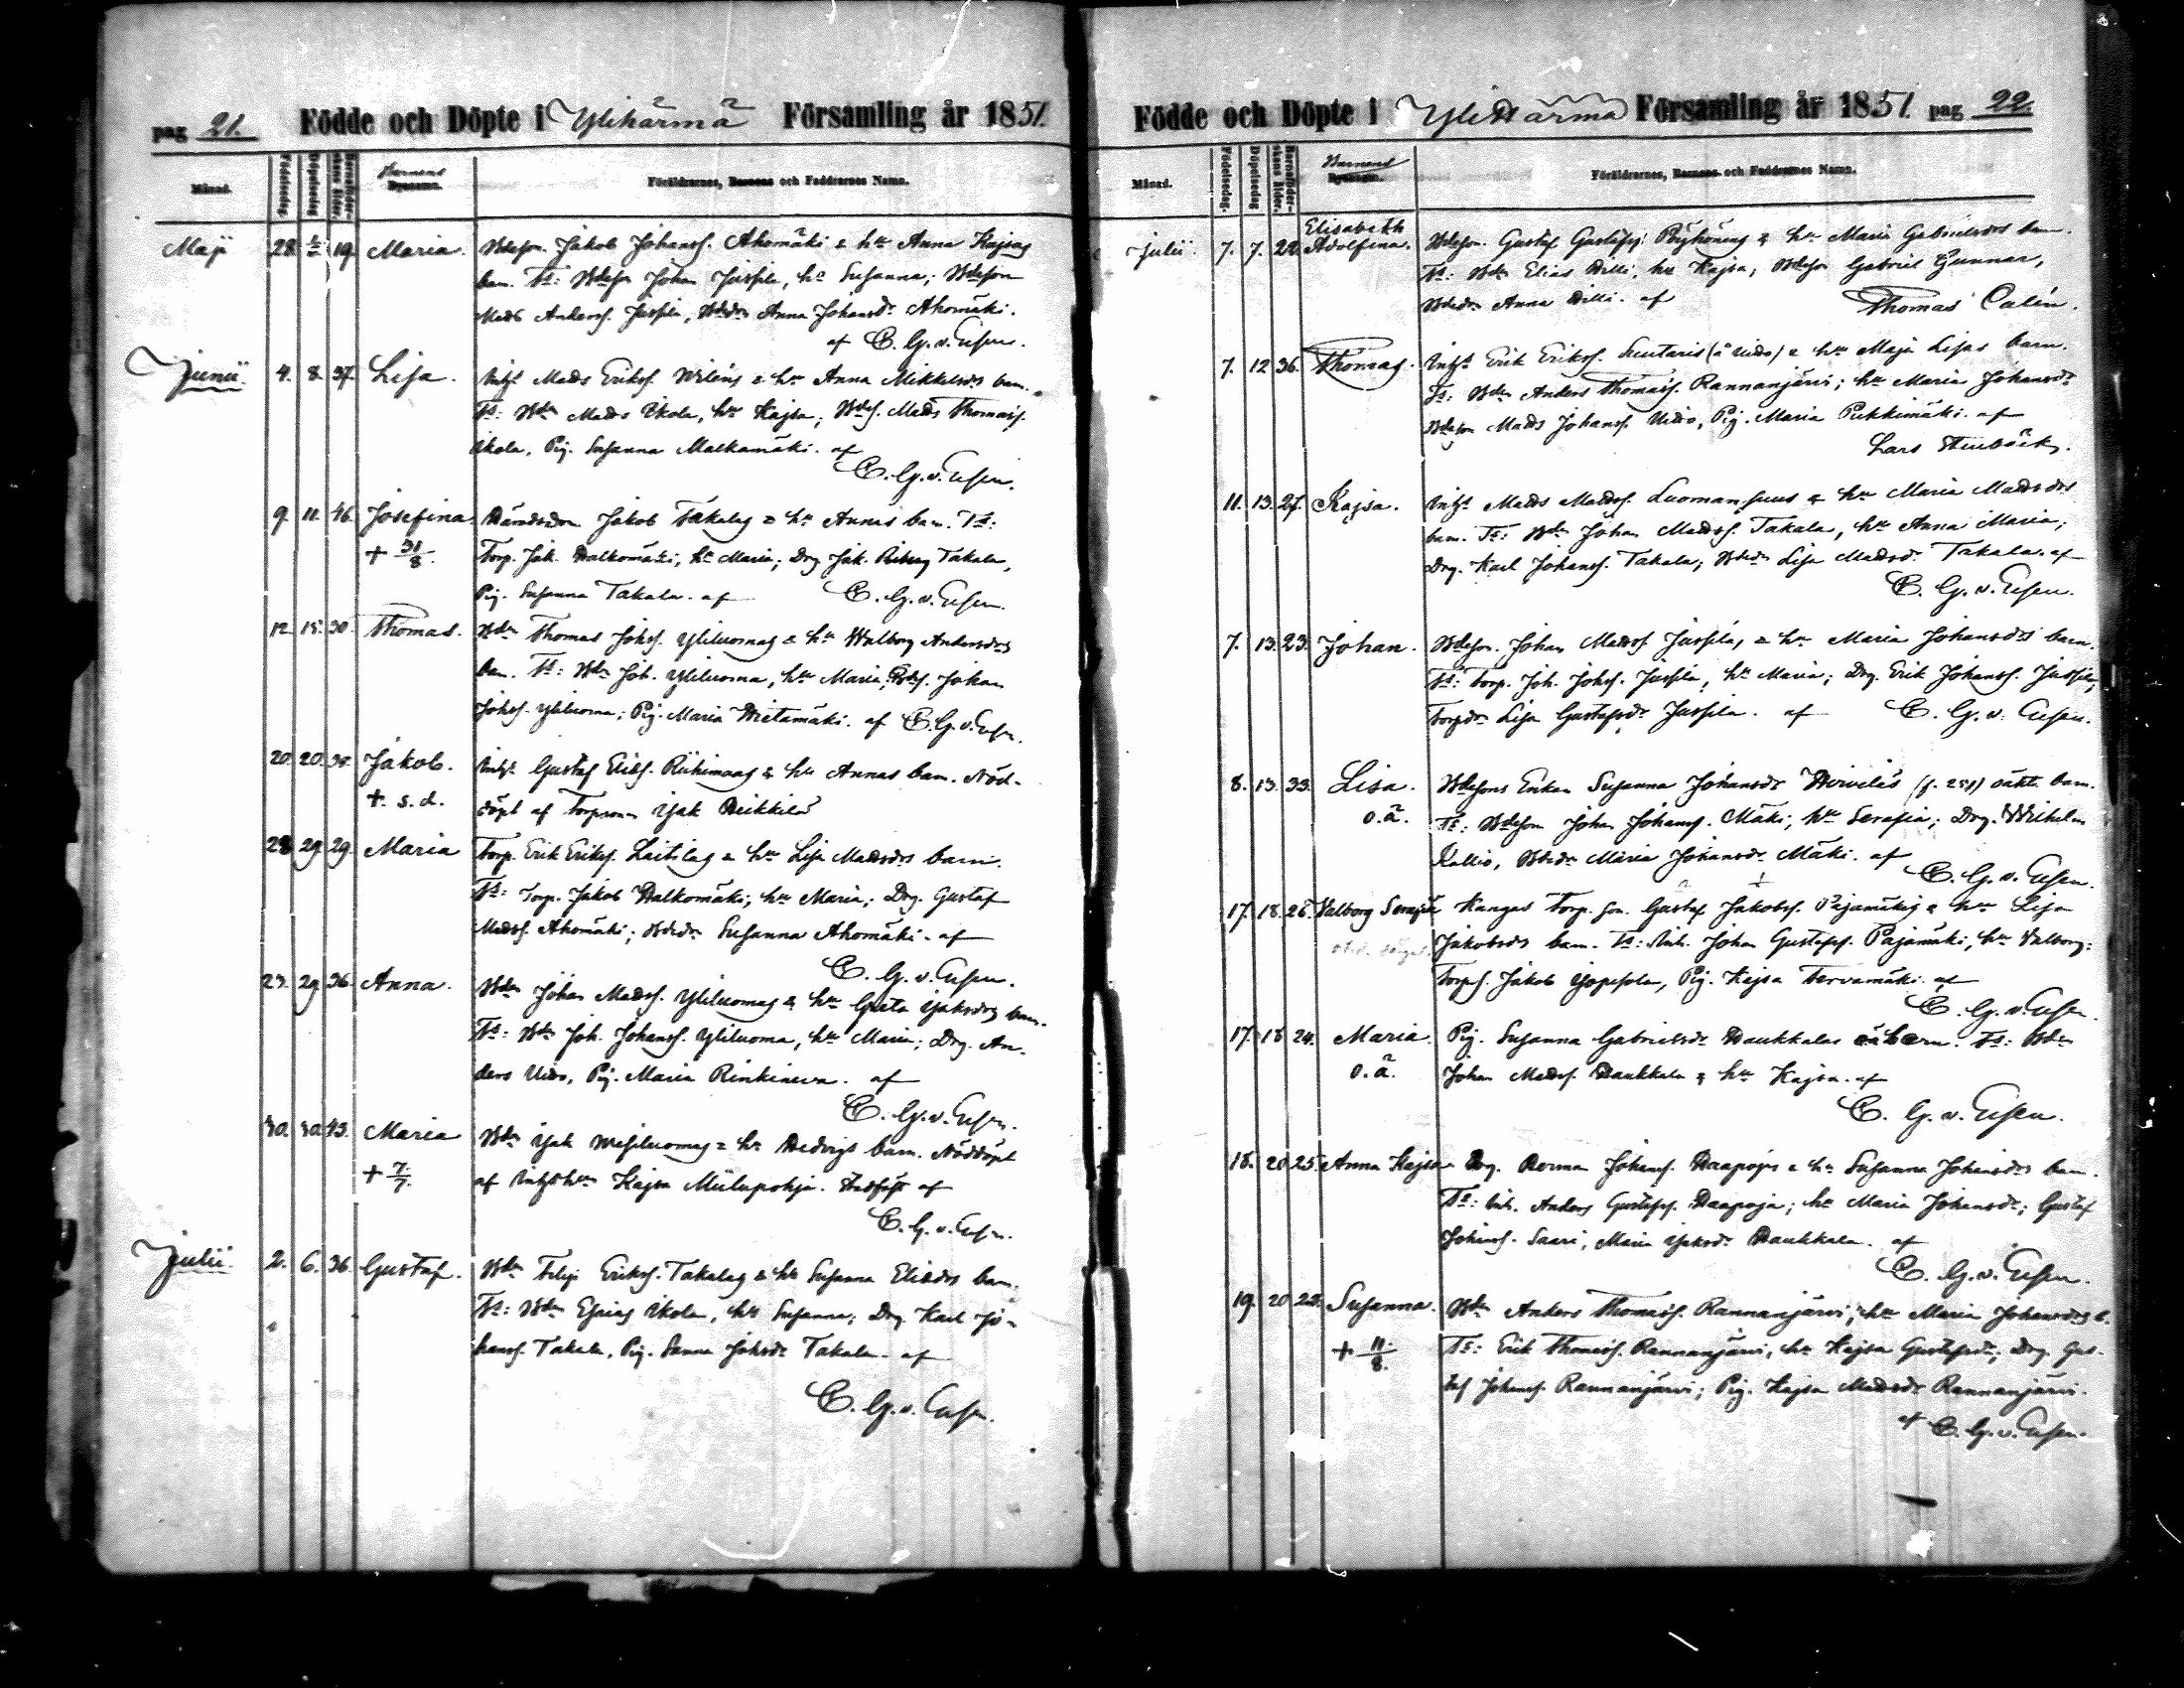 pag 21. Födde och Döpte i Ylihärmä Församling år 1851.
Månad. Födelsedag. Döpelsedag Barnens Föräldrarnes, Barnens och Faddrarnes Namn.
Maji 28. 1/6 19. Maria. Bdeson. Jakob Johanss. Ahomäki & hu Anna Kajsas
barn. Ts: Bdeson Johan Jussila, hu Susanna; Bdeson
Mads Anderss. Jussila, Bdedr Anna Johansdr Ahomäki.
af C. G. v. Essen.
Junii. 4. 8. 37. Lisa. Inhs Mads Erikss. Wiléns & hu Anna Mikkelsdrs barn.
Ts: Bdn Mads Ekola, hu Kajsa; Bdes. Mads Thomass.
Ekola, Pig. Susanna Malkamäki. af
C. G. v. Essen.
9. 11. 46. Josefina Häradsdom Jakob Takalas & hu Annas barn. Ts:
+ 31/8. Torp. Jak. Halkomäki, hu Maria; Drg Jak. Takala,
Pig. Susanna Takala. af C. G. v. Essen.
12. 15. 30. Thomas. Bdn Thomas Johss. Yliluomas & hu Walborg Andersdrs
barn. Ts: Bdn Joh. Yliluoma, hu Maria; Bdes. Johan
Johss. Yliluoma; Pig. Maria Hietamäki. af C. G. v. Essen.
20. 20. 35. Jakob. Inhs Gustaf Erikss. Riihimaas & hu Annas barn. Nöd-
+. s. d. döpt af Torpson Isak Heikkilä
28. 29. 29. Maria Torp. Erik Erikss. Laitilas & hu Lisa Madsdrs barn.
Ts: Torp. Jakob Halkomäki, hu Maria; Drg. Gustaf
Madss. Ahomäki; Bdedr Susanna Ahomäki. af
C. G. v. Essen.
23. 29. 36. Anna. Bdn Johan Madss. Yliluomas & hu Greta Isaksdrs barn.
Ts: Bdn Joh. Johanss. Yliluoma, hu Maria; Drg. An-
ders Uito, Pig. Maria Rinkineva. af
C. G. v. Essen.
30. 30. 43. Maria Bdn Isak & hu Hedvigs barn. Nöddöpt
+ 7/7. af Inhshu Kajsa Miilupohja. Stadfäst af
C. G. v. Essen.
Julii. 2. 6. 36. Gustaf. Bdn Filip Erikss. Takalas & hu Susanna Eliædrs barn.
Ts: Bdn Esaias Ekola, hu Susanna; Drg. Karl Jo-
hanss. Takala, Pig. Sanna Johsdr Takala. af
C. G. v. Essen.
Födde och Döpte i Ylihärmä Församling år 1851. pag 22.
Månad. Födelsedag. Döpelsedag Barnens Föräldrarnes, Barnens och Faddrarnes Namn.
Elisabeth
Julii. 7. 7. 22. Adolfina. Bdeson. Gustaf Gustafss. & hu Maria Gabrielsdrs barn.
Ts: Bdn Elias Hilli, hu Kajsa; Bdeson Gabriel Gunnar,
Bdedr Anna Hilli. af Thomas Calén.
7. 12. 36. Thomas. Inhs Erik Erikss. Suutaris (å Uito) & hu Maja Lisas barn.
Ts: Bdn Anders Thomass. Rannanjärvi; hu Maria Johansdr
Bdeson Mads Johanss. Uito, Pig. Maria Pukkimäki. af
Lars Stenbäck.
11. 13. 27. Kajsa. Inhs Mads Madss. & hu Maria Madsdrs
barn. Ts: Bdn Johan Madss. Takala, hu Anna Maria;
Drg. Karl Johanss. Takala; Bdedr Lisa Madsdr Takala. af
C. G. v. Essen.
7. 13. 23. Johan. Bdeson. Johan Madss. Jussilas & hu Maria Johansdrs barn.
Ts: Torp. Joh. Johss. Jussila, hu Maria; Drg. Erik Johanss. Jussila;
Torpdr Lisa Gustafsdr Jussila. af C. G. v. Essen.
8. 13. 33. Lisa. Bdesons Enkan Susanna Johansdr oäkta barn.
o. ä. Ts: Bdeson Johan Johanss. Mäki, hu Serafia; Drg. Wilhelm
Kallio, Bdedr Maria Johansdr Mäki. af
C. G. v. Essen.
17. 18. 26. Valborg Serafia Kangas Torp. son. Gustaf Jakobss. Pajamäkis & hu Lisa
Jakobsdrs barn. Ts: Inh. Johan Gustafss. Pajamäki, hu Valborg;
Torps. Jakob, Pig. Kajsa Tervamäki. af
C. G. v. Essen.
17. 18. 24. Maria. Pig. Susanna Gabrielsdr Haukkalas oä barn. Ts: Bdn
o. ä. Johan Madss. Haukkala & hu Kajsa. af
C. G. v. Essen.
18. 20. 25. Anna Kajsa Drg. Herman Johanss. Haapojas & hu Susanna Johansdrs barn.
Ts: Inh. Anders Gustafss. Haapoja; hu Maria Johansdr; Gustaf
Johanss. Saari, Maria Isaksdr Haukkala. af
C. G. v. Essen.
19. 20. 22. Susanna. Bdn Anders Thomass. Rannanjärvi, hu Maria Johansdrs b.
+ 11/8. Ts: Erik Thomass. Rannanjärvi, hu Kajsa Gustafsdr; Drg. Gus-
taf Johanss. Rannanjärvi; Pig. Kajsa Madsdr Rannanjärvi.
af C. G. v. Essen.